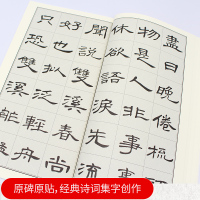 盡日晚倦梳
物是人非事事
休欲語淚先流
聞說雙溪春尚
好也擬泛輕舟
只恐
原碑原贴,经典诗词集字创作